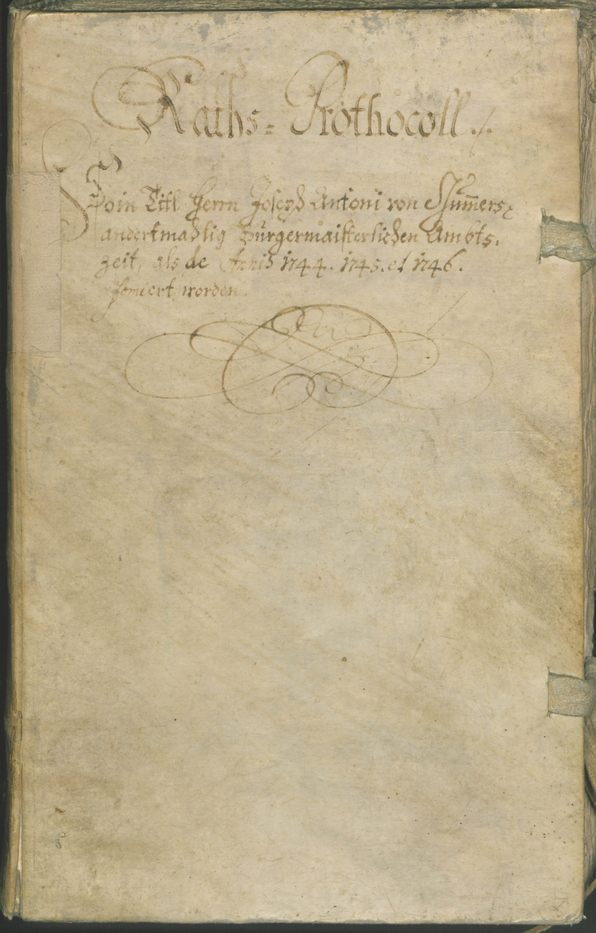 Raths= Prothocoll ./.
Titl Herrn Joseph Antoni von
andertmahlig Burgermaisterlichen Ambts=
zeit, als de Annis 1744. 1745. et 1746.
worden.